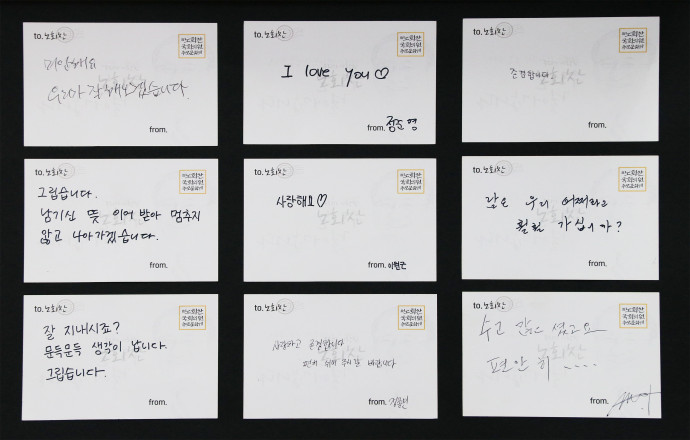 to. 노회찬
미안해요
우리가 잘 해보겠습니다.
from.
to. 노회찬
I love you♡
from. 정준영
to. 노회찬
존경합니다.
from.
그립습니다.
남기신 뜻 이어 받아 멈추지
않고 나아가겠습니다.
from.
사랑해요♡
from. 이현근
남은 우리 어쩌라고
훨훨 가십니까?
from.
to. 노회찬
잘 지내시죠?
문득문득 생각이 납니다.
그립습니다.
from.
to. 노회찬
사랑하고 존경합니다
편히 쉬시기 바랍니다
from.
to. 노회찬
수고 많으셨고요
편안히 ....